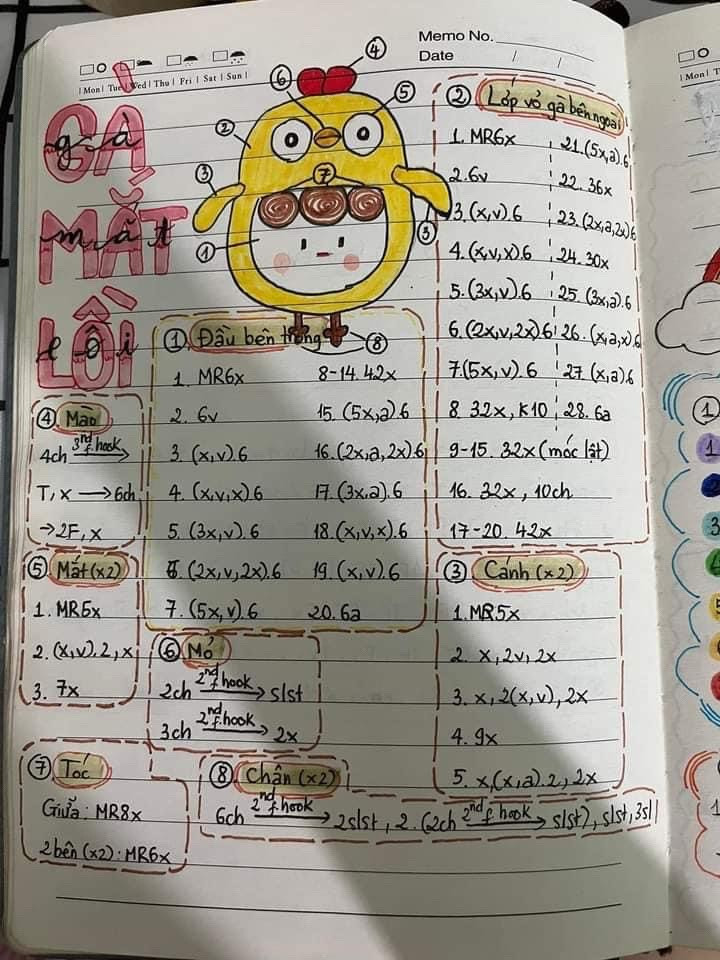 Memo No.
Date / /
Mon Tue Wed Thu Fri Sat Sun
GÀ
g à
MẮT
m ắ t
LỒI
l ồ i
① ② ③ ④ ⑤ ⑥ ⑦ ③ ⑧
① Đầu bên trong
1. MR6x
2. 6v
3. (x,v).6
4. (x,v,x).6
5. (3x,v).6
6. (2x,v,2x).6
7. (5x,v).6
8-14. 42x
15. (5x,a).6
16. (2x,a,2x).6
17. (3x,a).6
18. (x,v,x).6
19. (x,v).6
20. 6a
② Lớp vỏ gà bên ngoài
1. MR6x
2. 6v
3. (x,v).6
4. (x,v,x).6
5. (3x,v).6
6. (2x,v,2x).6
7. (5x,v).6
8. 32x, K10
9-15. 32x (móc lật)
16. 32x, 10ch
17-20. 42x
21. (5x,a).6
22. 36x
23. (2x,a,2x).6
24. 30x
25. (3x,a).6
26. (x,a,x).6
27. (x,a).6
28. 6a
③ Cánh (x2)
1. MR5x
2. x, 2v, 2x
3. x, 2(x,v), 2x
4. 9x
5. x,(x,a).2, 2x
④ Mào
4ch 3nd f. hook →
T, x → 6ch
→ 2F, x
⑤ Mắt (x2)
1. MR5x
2. (x,v).2, x
3. 7x
⑥ Mỏ
2ch 2nd f. hook → slst
3ch 2nd f. hook → 2x
⑦ Tóc
Giữa: MR8x
2 bên (x2): MR6x
⑧ Chân (x2)
6ch 2nd f. hook → 2slst, 2. (2ch 2nd f. hook → slst), slst, 3sl
①
1